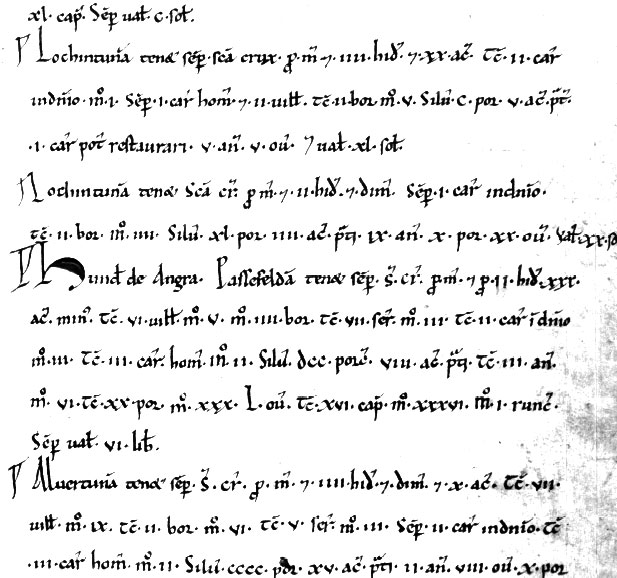 xl. cap̃. Sẽp ual̃. c. sol̃.
Lochintunã tenet sẽp. scã crux. ꝓ. m̃. ⁊. iiii. hid̃. ⁊. xx. ac̃. Tc̃. ii. car̃
indñio. m̊. i. Sẽp. i. car̃ hom̃. ⁊. ii. uill̃. tc̃. ii. bor. m̊. v. Silũ. c. por. v. ac̃. p̃ti.
.i. car̃ pot̃ restaurari. v. añ. v. où. ⁊ ual̃. xl. sol̃.
Lochintunã tenet Scã cr̃. ꝓ m̃. ⁊. ii. hid̃. ⁊. dim̃. Sẽp. i. car̃ indñio.
tc̃. ii. bor. m̊. iiii. Silũ. xl. por. iiii. ac̃. p̃ti. ix. añ. x. por. xx. où. Val̃. xx. sol
Hund̃ de Angra. Passefeldã tenet sẽp. S̃. cr̃. ꝓ m̃. ⁊ ꝓ. ii. hid̃. xxx.
ac̃. min̾. tc̃. vi. uill̃. m̊. v. m̊. iiii. bor. tc̃. vii. ser̃. m̊. iii. tc̃. ii. car̃ ĩdñio
m̊. iii. Tc̃. iii. car̃. hom̃. m̊. ii. Silũ. dcc. porc̃. viii. ac̃. p̃ti. Tc̃. iii. añ.
m̊. vi. tc̃. xx. por. m̊. xxx. L. où. tc̃. xvi. cap̃. m̊. xxxvi. m̊. i. runc̃.
Sẽp ual̃. vi. lib̃.
Aluertunã tenet sẽp. S̃. cr̃. ꝓ. m̃. ⁊. iiii. hid̃. ⁊. dim̃. ⁊. x. ac̃. Tc̃. vii.
uill̃. m̊. ix. tc̃. ii. bor. m̊. vi. tc̃. v. ser̃. m̊. iii. Sẽp. ii. car̃ indñio. tc̃
.iii. car̃ hom̃. m̊. ii. Silũ. cccc. por. xv. ac̃. p̃ti. ii. añ. viii. où. x. por